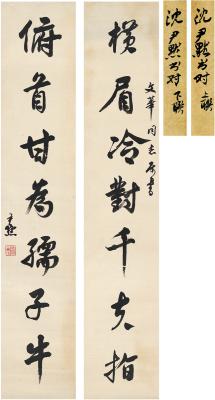 橫眉冷對千夫指
文華同志属書
俯首甘為孺子牛
尹默
沈尹默书对 上联
沈尹默书对 下联